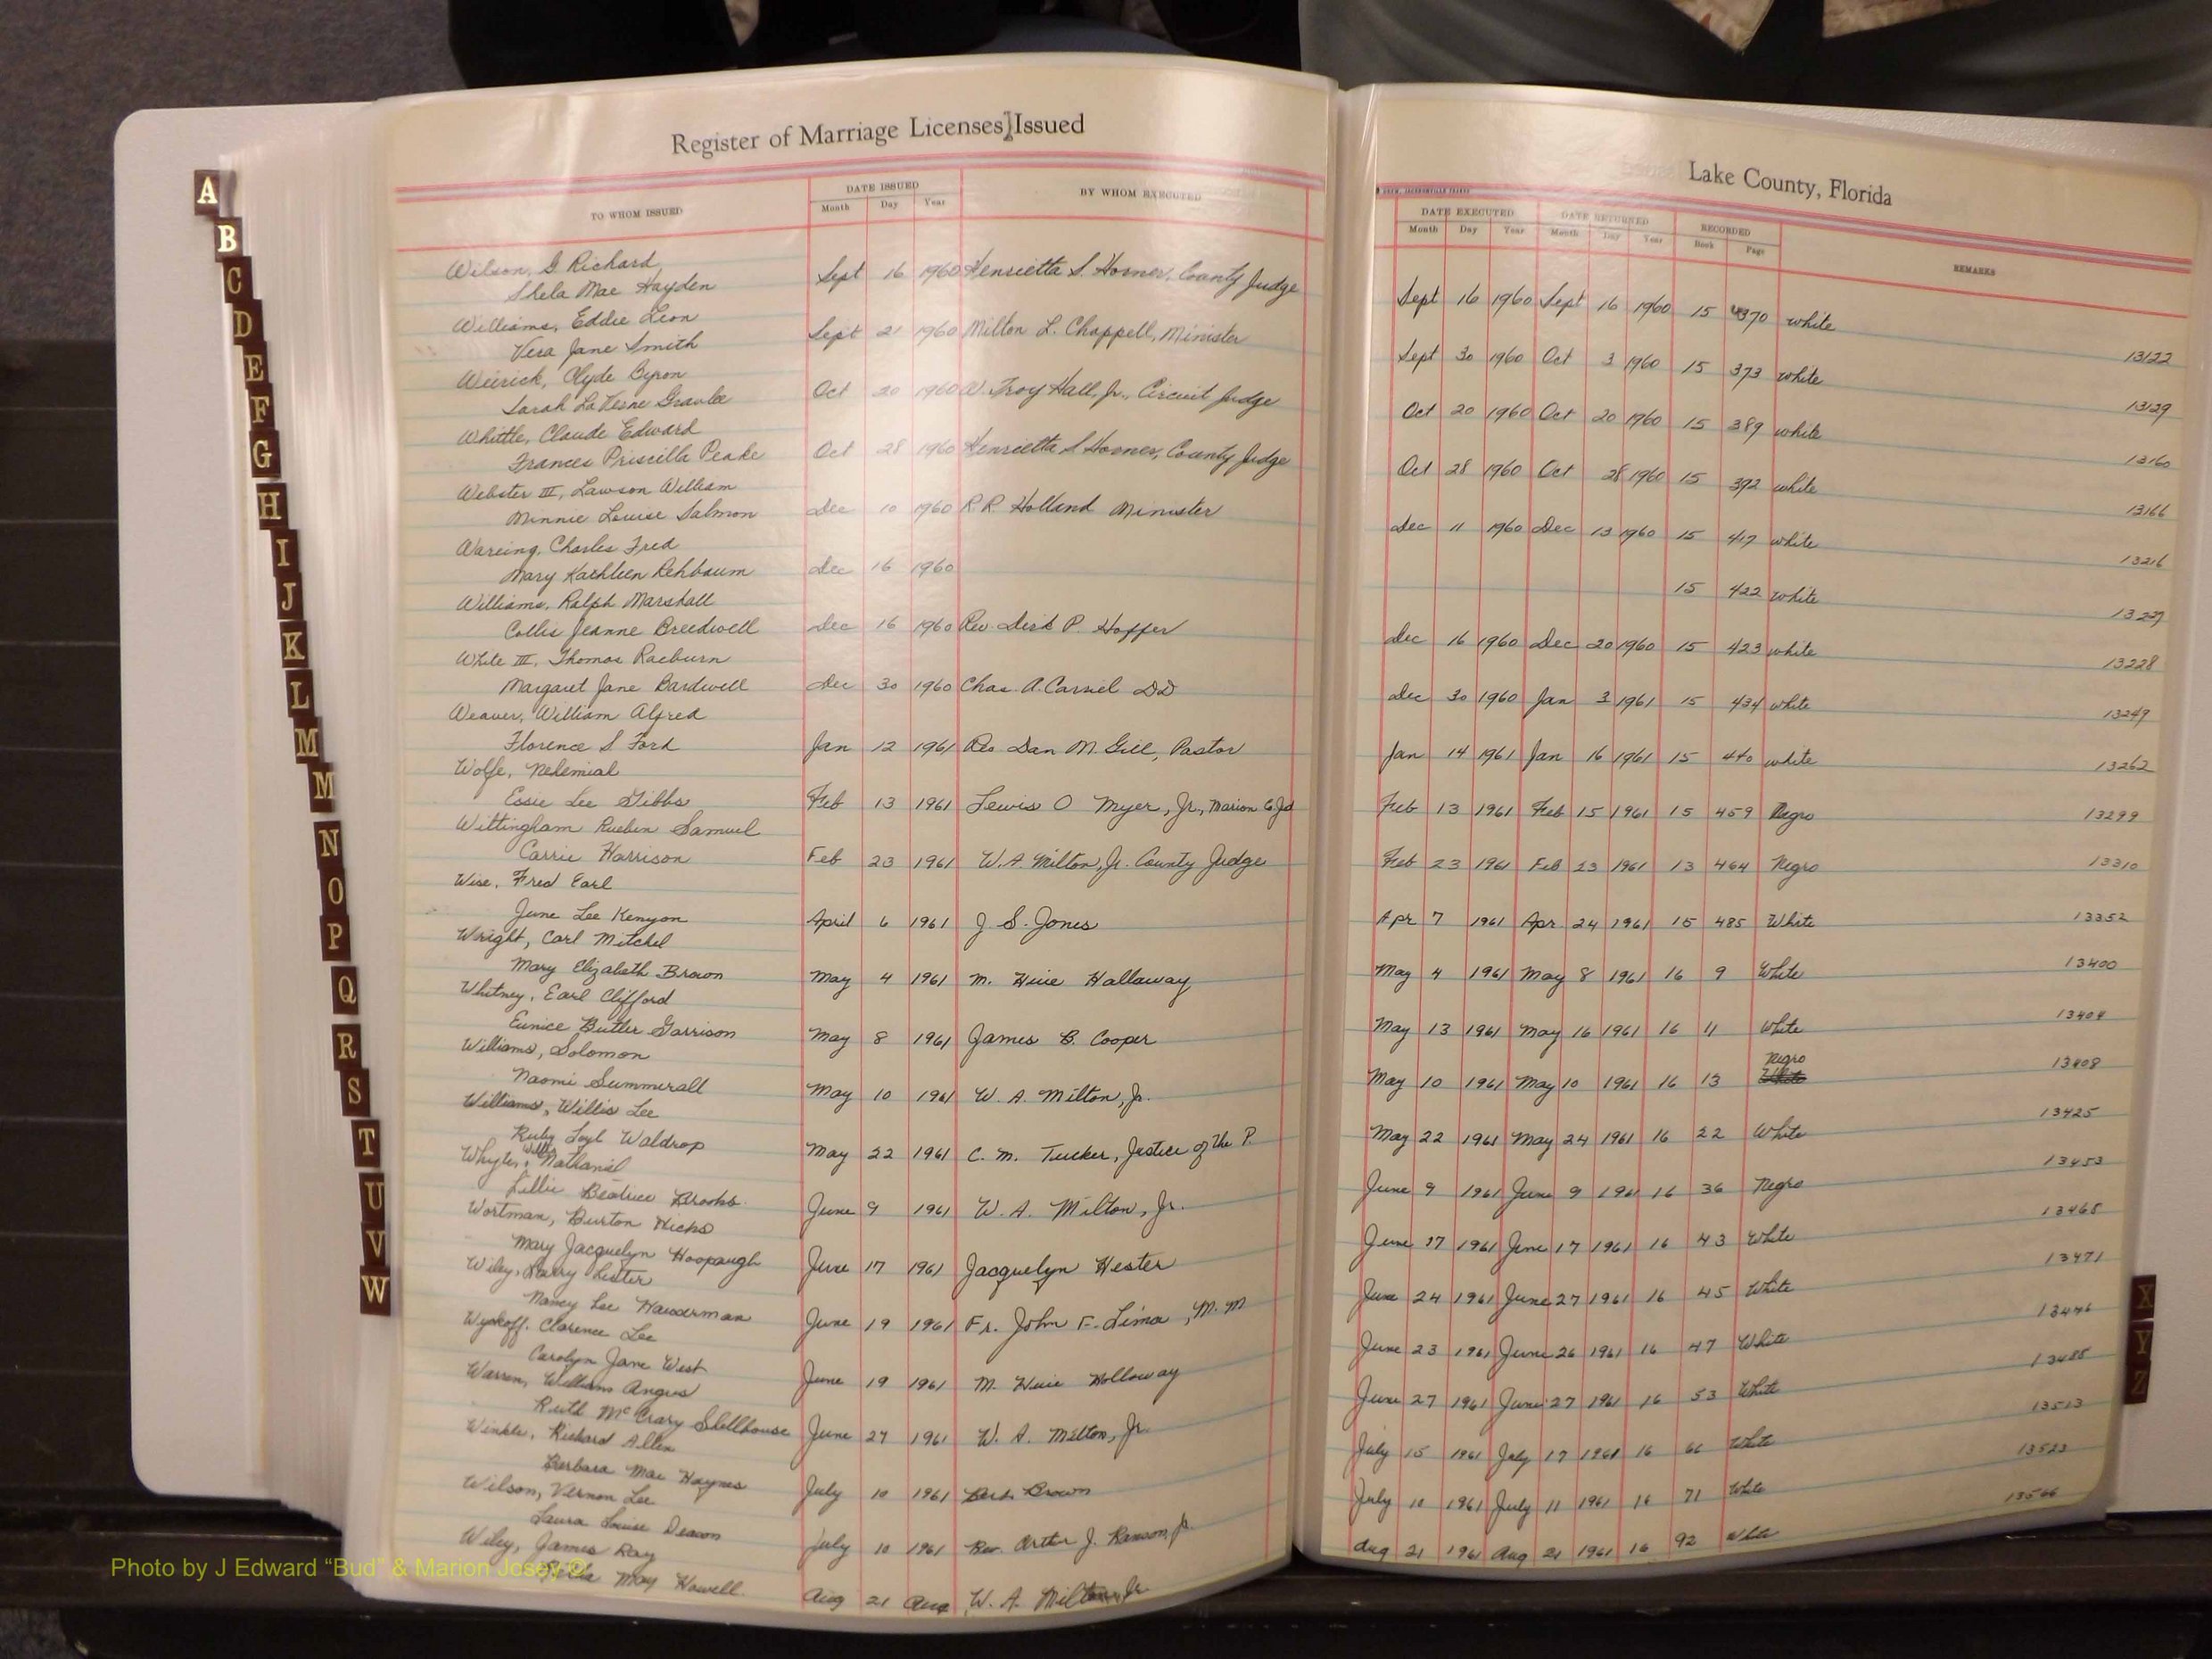 Register of Marriage Licenses Issued
TO WHOM ISSUED DATE ISSUED Month Day Year BY WHOM EXECUTED
Wilson, G. Richard
Shela Mae Hayden Sept 16 1960 Henrietta S. Horner, County Judge
Williams, Eddie Leon
Vera Jane Smith Sept 21 1960 Milton L. Chappell, Minister
Weirick, Clyde Byron
Sarah LaVerne Gravlee Oct 20 1960 W. Troy Hall, Jr., Circuit Judge
Whittle, Claude Edward
Frances Priscilla Peake Oct 28 1960 Henrietta S Horner, County Judge
Webster III, Lawson William
Minnie Louise Salmon Dec 10 1960 R. P. Holland Minister
Wareing, Charles Fred
Mary Kathleen Rehbaum Dec 16 1960
Williams, Ralph Marshall
Collis Jeanne Breedwell Dec 16 1960 Rev. P. Hoffer
White III, Thomas Raeburn
Margaret Jane Bardwell Dec 30 1960 Chas. A. Carriel DD
Weaver, William Alfred
Florence S Ford Jan 12 1961 Rev Dan M. Gill, Pastor
Wolfe, Nehemial
Essie Lee Gibbs Feb 13 1961 Lewis O Myer, Jr., Marion Co Jd
Wittingham Rueben Samuel
Carrie Harrison Feb 23 1961 W. A. Milton, Jr. County Judge
Wise, Fred Earl
June Lee Kenyon April 6 1961 J S. Jones
Wright, Carl Mitchel
Mary Elizabeth Brown May 4 1961 M. Huie Hallaway
Whitney, Earl Clifford
Eunice Butler Garrison May 8 1961 James B. Cooper
Williams, Solomon
Naomi Summerall May 10 1961 W. A. Milton, Jr.
Williams, Willis Lee
Ruby Waldrop May 22 1961 C. M. Tucker, Justice of the P.
Whyte, Nathaniel
Lillie Beatrice Brooks. June 9 1961 W. A. Milton, Jr.
Wortman, Burton Hicks
Mary Jacquelyn Hoopaugh June 17 1961 Jacquelyn Hester
Wiley, Harry Lester
Nancy Lee June 19 1961 Fr. John F. Lima, M. M
Wyckoff. Clarence Lee
Carolyn Jane West June 19 1961 M. Huie Holloway
Warren, William Angus
Ruth McCrary Shellhouse June 27 1961 W. A. Milton, Jr.
Winkle, Richard Allen
Barbara Mae Haynes July 10 1961 Brown
Wilson, Vernon Lee
Laura Louise Deacon July 10 1961 Rev. Arthur J. Ranson, Jr.
Wiley, James Ray
May Howell Aug 21 Aug W. A. Milton, Jr
Lake County, Florida
DATE EXECUTED Month Day Year DATE RETURNED Month Day Year RECORDED Book Page REMARKS
Sept 16 1960 Sept 16 1960 15 370 white 13122
Sept 30 1960 Oct 3 1960 15 373 white 13129
Oct 20 1960 Oct 20 1960 15 389 white 13160
Oct 28 1960 Oct 28 1960 15 392 white 13166
Dec 11 1960 Dec 13 1960 15 417 white 13216
15 422 white 13227
Dec 16 1960 Dec 20 1960 15 423 white 13228
Dec 30 1960 Jan 3 1961 15 434 white 13249
Jan 14 1961 Jan 16 1961 15 440 white 13262
Feb 13 1961 Feb 15 1961 15 459 Negro 13299
Feb 23 1961 Feb 23 1961 13 464 Negro 13310
Apr 7 1961 Apr 24 1961 15 485 White 13352
May 4 1961 May 8 1961 16 9 White 13400
May 13 1961 May 16 1961 16 11 White 13404
May 10 1961 May 10 1961 16 13 Negro White 13408
May 22 1961 May 24 1961 16 22 White 13425
June 9 1961 June 9 1961 16 36 Negro 13453
June 17 1961 June 17 1961 16 43 White 13465
June 24 1961 June 27 1961 16 45 White 13471
June 23 1961 June 26 1961 16 47 White 13476
June 27 1961 June 27 1961 16 53 White 13485
July 15 1961 July 17 1961 16 66 White 13513
July 10 1961 July 11 1961 16 71 White 13523
Aug 21 1961 Aug 21 1961 16 92 White 13566
A
B
C
D
E
F
G
H
I
J
K
L
M
M
N
O
P
Q
R
S
T
U
V
W
X
Y
Z
Photo by J Edward “Bud” & Marion Josey ©